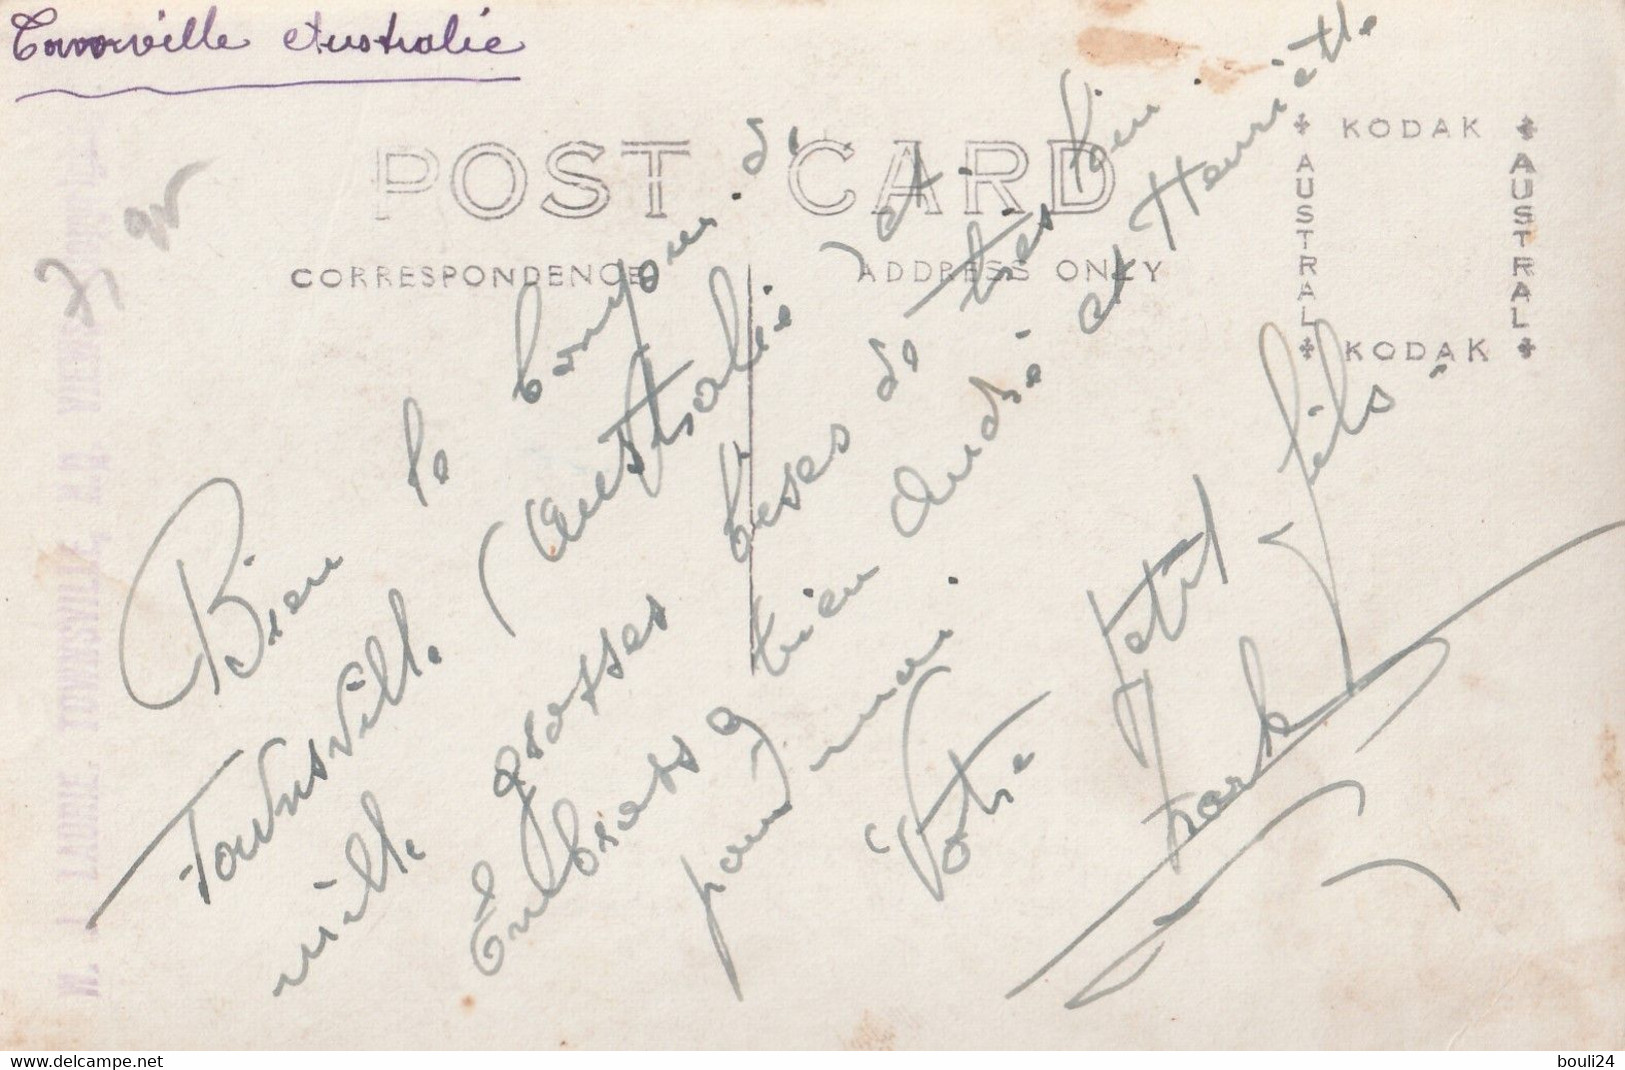 Townville Australie
POST CARD
CORRESPONDENCE
ADDRESS ONLY
KODAK
AUSTRAL
AUSTRAL
KODAK
M. J. LAURIE, TOWNSVILLE, N.Q. VIEWS
Bien le bonjour de
Townsville (Australie) et
mille grosses bises de très loin.
Embrassez bien André et Henriette
pour moi.
Votre petit fils.
www.delcampe.net
bouli24